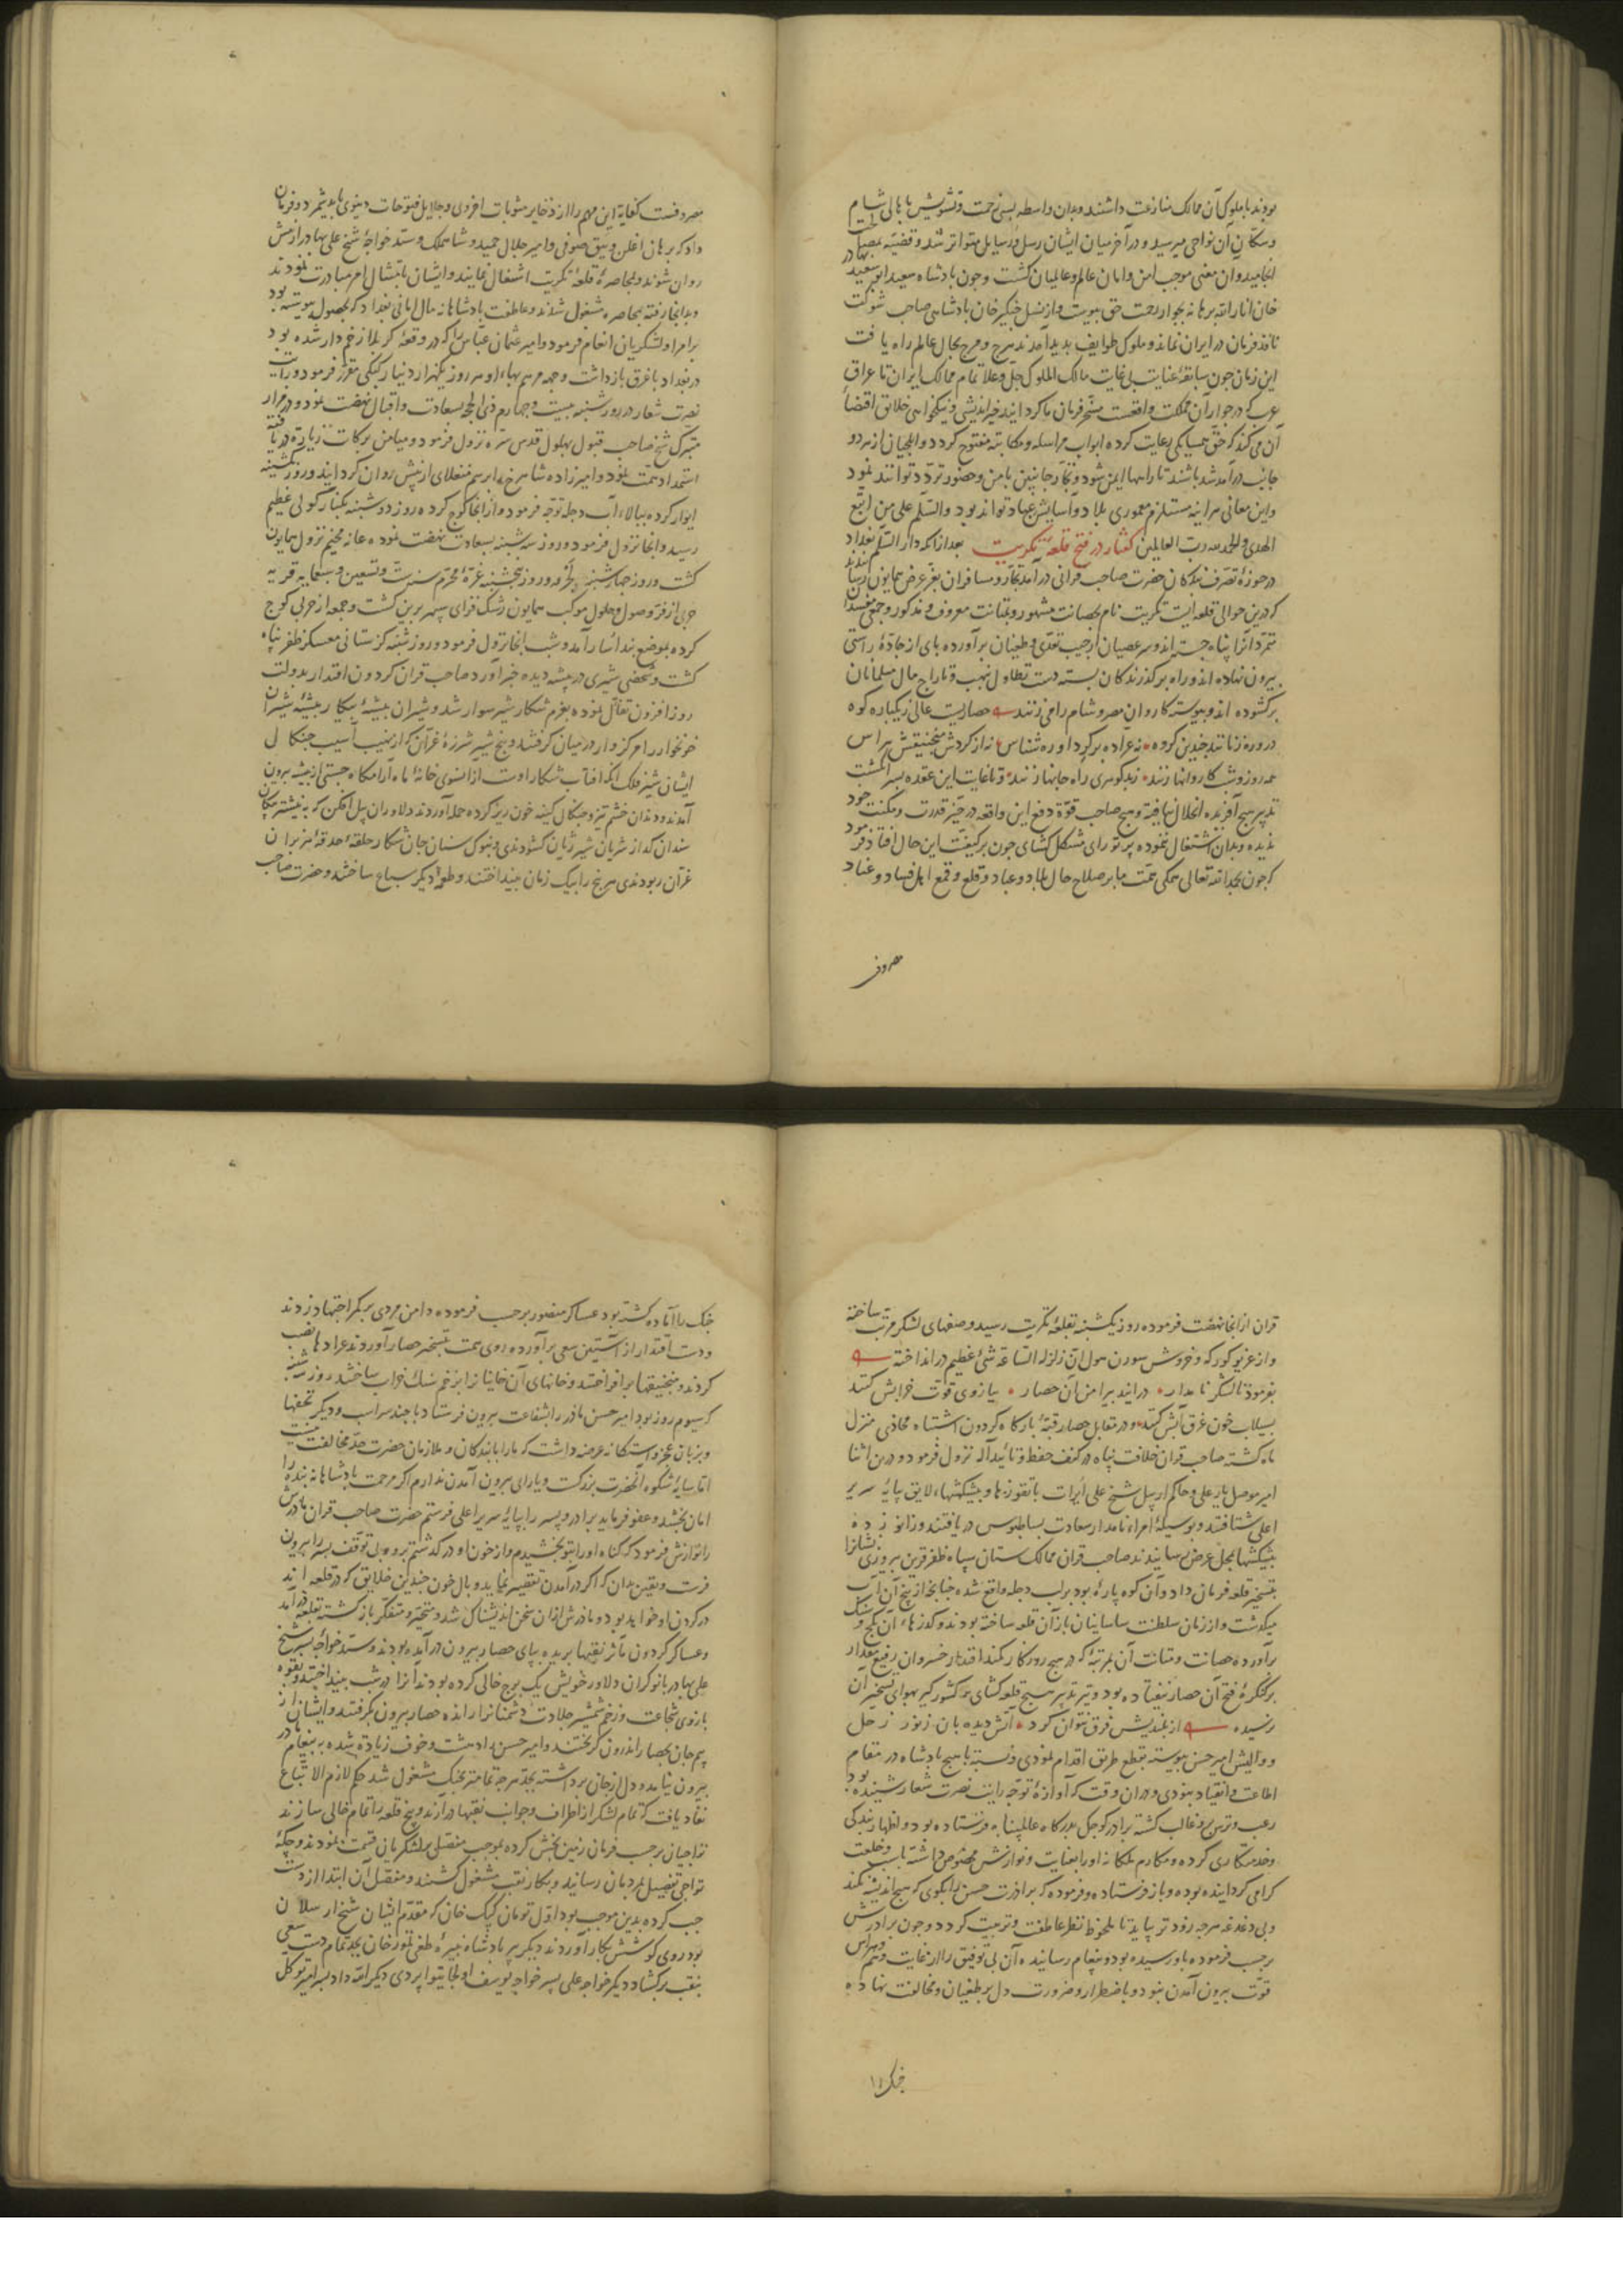 بودند با ملوک آن ممالک منازعت داشتند و بدان واسطه بسی زحمت و تشویش باهالی شام
و سکان آن نواحی میرسید و در آخر میان ایشان رسل و رسایل متواتر شد و قضیه بمصالحت
انجامید و آن معنی موجب امن و امان عالم و عالمیان گشت و چون پادشاه سعید ابو سعید بهادر
خان انار الله برهانه بجوار رحمت حق پیوست و از نسل چنگیز خان پادشاهی صاحب شوکت
نافذ فرمان در ایران نماند و ملوک طوایف پدید آمدند هرج و مرج بحال عالم راه یافت
این زمان چون سابقه عنایت بی غایت مالک الملوک جل و علا تمام ممالک ایران تا عراق
عرب که در جوار آن مملکت واقعست مسخر فرمان ما گردانید خیراندیشی و نیکخواهی خلایق اقتضاء
آن می کند که حق همسایگی رعایت کرده ابواب مراسله و مکاتبه مفتوح گردد و ایلچیان از هر دو
جانب در آمد شد باشند تا راهها ایمن شود و تجار جانبین بامن و حضور تردد توانند نمود
و این معانی هر اینه مستلزم معموری بلاد و آسایش عباد تواند بود و السلم علی من اتبع
الهدی و الحمد لله رب العالمین گفتار در فتح قلعه تکریت بعد از انکه دار السلم بغداد
در حوزه تصرف بندگان حضرت صاحب قرانی در آمد تجار و مسافران بعز عرض همایون رسانیدند
که درین حوالی قلعه ایست تکریت نام بحصانت مشهور و بمتانت معروف و مذکور و جمعی مفسدان
متمرد آنرا پناه جسته اند و سر عصیان از جیب تعدی و طغیان برآورده پای از جاده راستی
بیرون نهاده اند و راه بر گذرندگان بسته دست تطاول بنهب و تاراج مال مسلمانان
برگشوده اند و پیوسته کاروان مصر و شام را می زنند حصاریست عالی ز یکباره کوه
در و رهزنانند چندین گروه نه عراده بر گرد او ره شناس نه از گردش منجنیقش هراس
همه روز و شب کاروانها زنند ز بدگوهری راه جانها زنند و تا غایت این عقده بسر انگشت
تدبیر هیچ آفریده انحلال نیافته و هیچ صاحب قوة دفع این واقعه در حیز قدرت و مکنت خود
ندیده و بدان اشتغال ننموده پرتو رای مشکل گشای چون بر کیفیت این حال افتاد فرمود
که چون بحمد الله تعالی همگی همت ما بر صلاح حال بلاد و عباد و قلع و قمع اهل فساد و عناد
مصروف
مصروفست کفایة این مهم را از ذخایر مثوبات اخروی و جلایل فتوحات دنیوی باید شمرد و فرمان
داد که برهان اغلن و یبق صوفی و امیر جلال حمید و شاملک و سید خواجه شیخ علی بهادر از پیش
روان شوند و بمحاصره قلعه تکریت اشتغال نمایند و ایشان بامتثال امر مبادرت نمودند
و بدانجا رفته بمحاصره مشغول شدند و عاطفت پادشاهانه مال امانی بغداد که بحصول پیوسته بود
بر امرا و لشکریان انعام فرمود و امیر عثمان عباس را که در وقعه کربلا زخم دار شده بود
در بغداد با غرق باز داشت و جهه مرهم بهاء او هر روز یکهزار دینار کپکی مقرر فرمود و رایت
نصرت شعار در روز شنبه بیست و چهارم ذی الحجه بسعادت و اقبال نهضت نمود و در مزار
متبرک شیخ صاحب قبول بهلول قدس سره نزول فرمود و میامن برکات زیارة دریافته
استمداد همت نمود و امیرزاده شاهرخ را برسم منغلای از پیش روان گردانید و روز یکشنبه
ایوار کرده ببالاء آب دجله توجه فرمود و از آنجا کوچ کرده روز دوشنبه بکنار کولی عظیم
رسید و آنجا نزول فرمود و روز سه شنبه بسعادت نهضت نموده عانه مخیم نزول همایون
گشت و روز چهارشنبه و روز پنجشنبه غره محرم سنه ست و تسعین و سبعمایه قریه
حربی از فر وصول و حلول موکب همایون رشک فزای سپهر برین گشت و جمعه از حربی کوچ
کرده بموضع بند آسار آمد و شب انجا نزول فرمود و روز شنبه کرستانی معسکر ظفر پناه
گشت و شخصی شیری در بیشه دیده خبر آورد صاحب قران گردون اقتدار بدولت
روز افزون تفال نموده بعزم شکار شیر سوار شد و شیران بیشه پیکار بیشه شیران
خونخوار را مرکز وار در میان گرفتند و پنج شیر شرزه غران که از نهیب آسیب چنگال
ایشان شیر فلک انکه آفتاب شکار اوست از انسوی خانه ماه آرامگاه جستی از بیشه بیرون
آمدند و دندان خشم تیز و چنگال کینه خون ریز کرده حمله آوردند دلاوران پیل افکن که به پیشتر پیکان
سندان گداز شریان شیر ژیان گشودندی و بنوک سنان جان شکار حلقه حدقه هزبران
غران ربودندی هر پنج را بیک زمان بینداختند و طعمه دیگر سباع ساختند و حضرت صاحب
قران از انجا نهضت فرموده روز یکشنبه بقلعه تکریت رسید و صفهای لشکر مرتب ساخته
و از غریو کورکه و خروش سورن هول ان زلزلة الساعة شئ عظیم در انداخته
بفرمود تا لشکر نامدار در ایند پیرامن آن حصار ببازوی قوت خرابش کنند
بسیلاب خون غرق آبش کنند و در مقابل حصار قبه بارگاه گردون اشتباه محاذی منزل
ماه گشته صاحب قران خلافت پناه در کنف حفظ و تایید اله نزول فرمود و درین اثنا
امیر موصل یار علی و حاکم اربیل شیخ علی اویرات با تقوزها و پیشکشهاء لایق بپایه سریر
اعلی شتافتند و بوسیله امراء نامدار سعادت بساطبوس دریافتند و زانو زده
پیشکشها بمحل عرض رسانیدند صاحب قران ممالک ستان سپاه ظفر قرین پیروزی نشانرا
بتسخیر قلعه فرمان داد و آن کوه پاره بود بر لب دجله واقع شده چنانچه از پنج آن آب
میگذشت و از زمان سلطنت ساسانیان باز آن قلعه ساخته بودند و گذرهاء آن بگچ و سنگ
برآورده حصانت و متانت آن بمرتبه که در هیچ روزگار کمند اقتدار خسروان رفیع مقدار
بر کنگره فتح آن حصار نیفتاده بود و تیر تدبیر هیچ قلعه گشای کشورگیر بهوای تسخیر آن
نرسیده از بلندیش فرق نتوان کرد آتش دیده بان ز نور زحل
و والیش امیر حسن پیوسته بقطع طریق اقدام نمودی و نسبت با هیچ پادشاه در مقام
اطاعت و انقیاد نبودی و دران وقت که آوازه توجه رایت نصرت شعار شنیده بود
رعب و ترس برو غالب گشته برادر کوچک بدرگاه عالمپناه فرستاده بود و اظهار بندگی
و خدمتکاری کرده و مکارم ملکانه او را بعنایت و نوازش مخصوص داشته باسب و خلعت
گرامی گردانیده بود و باز فرستاده و فرموده که برادرت حسن را بگوی که هیچ اندیشه نکند
و بی دغدغه هر چه زودتر بیاید تا ملحوظ نظر عاطفت و تربیت گردد و چون برادرش
برحسب فرموده باو رسیده بود و پیغام رسانیده آن بی توفیق را از غایت وهم و هراس
قوت بیرون آمدن نبود و باضطرار و ضرورت دل بر طغیان و مخالفت نهاده
جنک را
جنک را آماده گشته بود عساکر منصور برحسب فرموده دامن مردی بر کمر اجتهاد زدند
و دست اقتدار از آستین سعی برآورده روی همت بتسخیر حصار آوردند عرادها نصب
کردند و منجنیقها برافراختند و خانهای آن خاینانرا بزخم سنک خراب ساختند روز سه شنبه
که سیوم روز بود امیر حسن مادر را بشفاعت بیرون فرستاد با چند سر اسب و دیگر تحفها
و بزبان عجز و استکانه عرضه داشت که ما را با بندگان و ملازمان حضرت حد مخالفت نیست
اما سایه شکوه آنحضرت بزرگست و یارای بیرون آمدن ندارم اگر مرحمت پادشاهانه بنده را
امان بخشد و عفو فرماید برادر و پسر را بپایه سریر اعلی فرستم حضرت صاحب قران مادرش
را نوازش فرمود که گناه او را بتو بخشیدم و از خون او در گذشتم برو و بی توقف پسر را بیرون
فرست و یقین بدان که اگر در آمدن تقصیر نماید وبال خون چندین خلایق که در قلعه اند
در گردن او خواهد بود و مادرش ازان سخن اندیشناک شد و متحیر و متفکر باز گشته بقلعه در آمد
و عساکر گردون مآثر نقبها بریده بپای حصار بیرون در آمده بودند و سید خواجه پسر شیخ
علی بهادر با نوکران دلاور خویش یک برج خالی کرده بودند آنرا در شب بینداختند و بقوة
بازوی شجاعت و زخم شمشیر جلادت دشمنانرا رانده حصار بیرون بگرفتند و ایشان از
بیم جان بحصار اندرون گریختند و امیر حسن را دهشت و خوف زیادة شده به پیغام مادر
بیرون نیامد و دل از جان برداشته بجد هر چه تمامتر بجنگ مشغول شد حکم لازم الاتباع
نفاد یافت که تمام لشکر از اطراف و جوانب نقبها در آرند و پنج قلعه را تمام خالی سازند
تواجیان برحسب فرمان زمین بخش کرده بموجب مفصل بر لشکریان قسمت نمودند و چگه
تواجی تفصیل بمردمان رسانید و بکار نقب مشغول گشتند و مفصل آن ابتدا از دست
چپ کرده بدین موجب بود اول تومان کپک خان که مقدم ایشان شیخ ارسلان
بود روی کوشش بکار آوردند دیگر پیر پادشاه نبیره طغی تیمور خان بجد تمام دست سعی
بنقب برگشاد دیگر خواجه علی پسر خواجه یوسف اولجایتو اپردی دیگر الله داد پسر امیر توکل